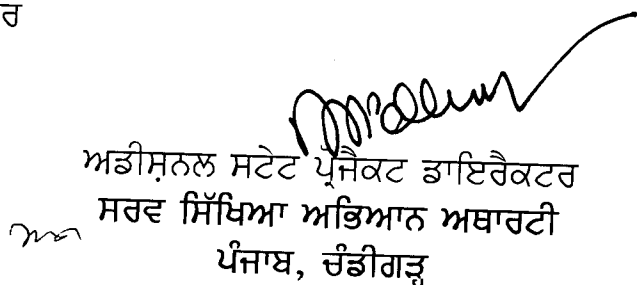 ਰ
ਅਡੀਸ਼ਨਲ ਸਟੇਟ ਪ੍ਰੋਜੈਕਟ ਡਾਇਰੈਕਟਰ
ਸਰਵ ਸਿੱਖਿਆ ਅਭਿਆਨ ਅਥਾਰਟੀ
ਪੰਜਾਬ, ਚੰਡੀਗੜ੍ਹ